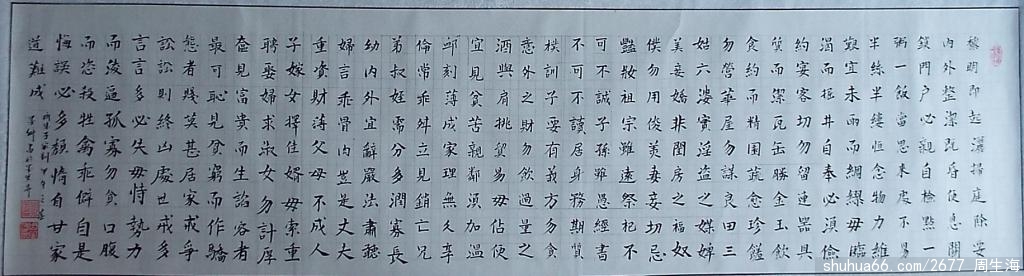 黎明即起灑掃庭除要
内外整潔既昏便息關
鎖門户必親自檢點一
粥一飯當思來處不易
半絲半縷恒念物力維
艱宜未雨而綢繆毋臨
渴而掘井自奉必須儉
約宴客切勿留連器具
質而潔瓦缶勝金玉飲
食約而精園蔬愈珍饈
勿營華屋勿謀良田三
姑六婆實淫盗之媒婢
美妾嬌非閨房之福奴
僕勿用俊美妻妾切忌
豔妝祖宗雖遠祭祀不
可不誠子孫雖愚經書
不可不讀居身務期質
樸訓子要有義方勿貪
意外之財勿飲過量之
酒與肩挑貿易勿佔便
宜見貧苦親鄰須加温
卹刻薄成家理無久享
倫常乖舛立見銷亡兄
弟叔姪需分多潤寡長
幼内外宜辭嚴法肅聽
婦言乖骨肉豈是丈夫
重資財薄父母不成人
子嫁女擇佳婿毋索重
聘娶婦求淑女勿計厚
奩見富貴而生諂容者
最可恥見貧窮而作驕
態者賤莫甚居家戒爭
訟訟則終凶處世戒多
言言多必失毋恃勢力
而凌逼孤寡勿貪口腹
而恣殺牲禽乖僻自是
悔誤必多頹惰自甘家
道難成
shuhua66.com/2677 周生海